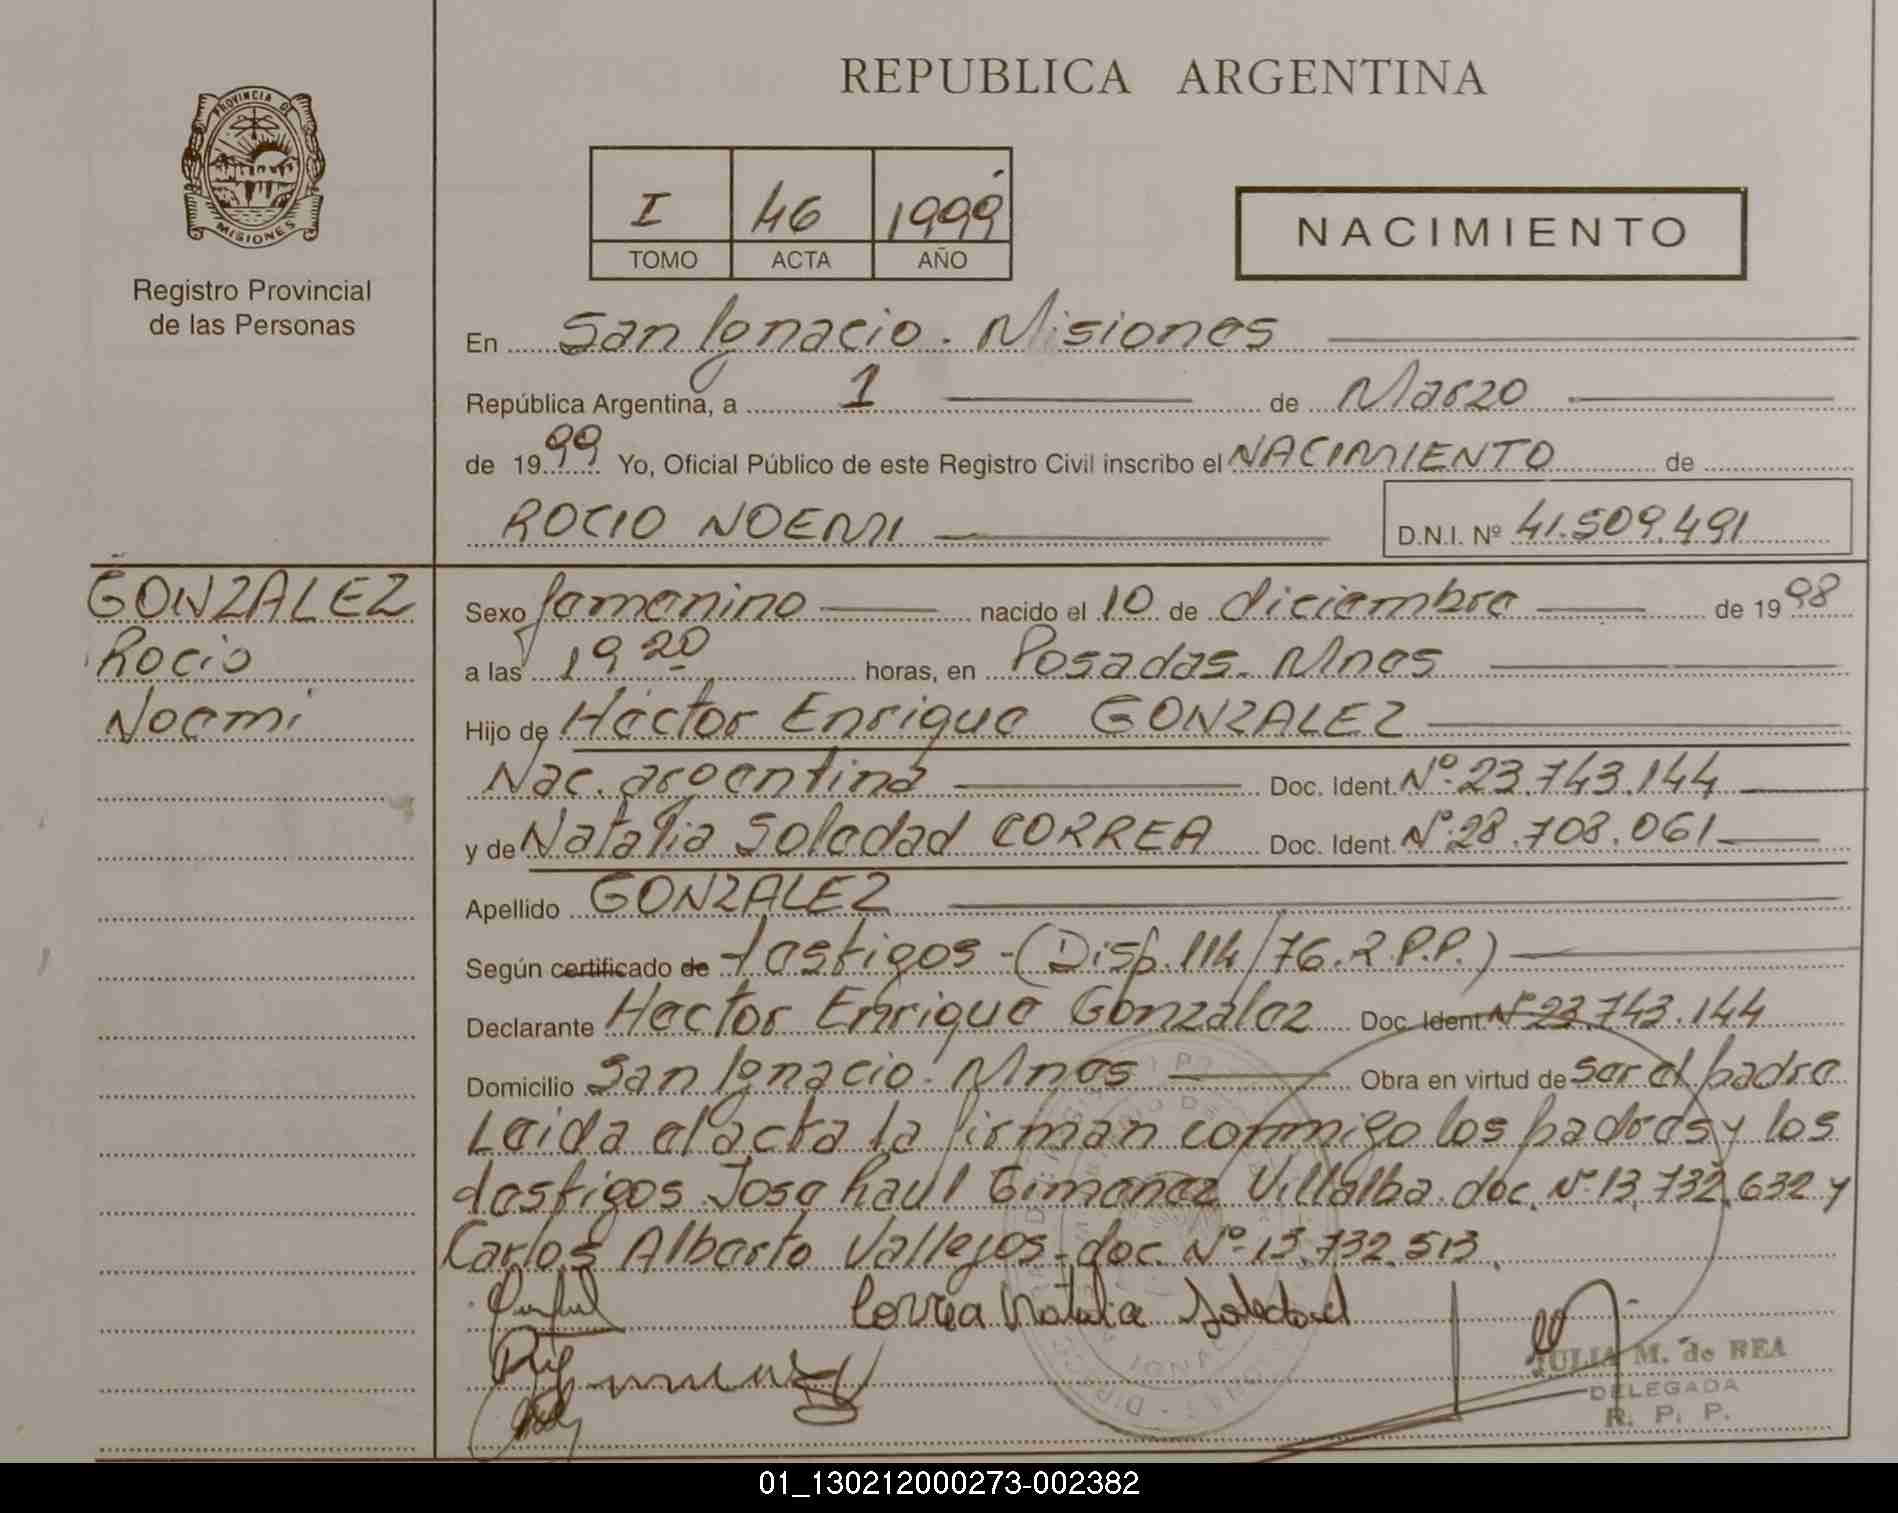 REPUBLICA ARGENTINA
PROVINCIA DE
MISIONES
Registro Provincial
de las Personas
I 46 1999
TOMO ACTA AÑO
NACIMIENTO
En San Ignacio. Misiones
República Argentina, a 1 de Marzo
de 1999 Yo, Oficial Público de este Registro Civil inscribo el NACIMIENTO de
ROCIO NOEMI D.N.I. Nº 41.509.491
GONZALEZ
Rocio
Noemi
Sexo femenino nacido el 10 de diciembre de 1998
a las 19 20 horas, en Posadas. Mnes
Hijo de Hector Enrique GONZALEZ
Nac. argentina Doc. Ident. Nº 23.743.144
y de Natalia Soledad CORREA Doc. Ident. Nº 28.708.061
Apellido GONZALEZ
Según certificado de testigos - (Disp. 114/76. R.P.P.)
Declarante Hector Enrique Gonzalez Doc. Ident. Nº 23.743.144
Domicilio San Ignacio. Mnes Obra en virtud de ser el padre
Leida el acta la firman conmigo los padres y los
testigos Jose Raul Gimenez Villalba. doc. Nº 13.732.632 y
Carlos Alberto Vallejos. doc. Nº 13.732.513.
Correa Natalia Soledad
JULIA M. de REA
DELEGADA
R. P. P.
01_130212000273-002382